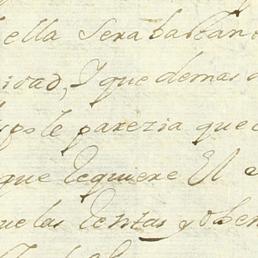 ella sera bastan
idad, I que demas
le parezia que
que Requiere El
que las Rentas y oben